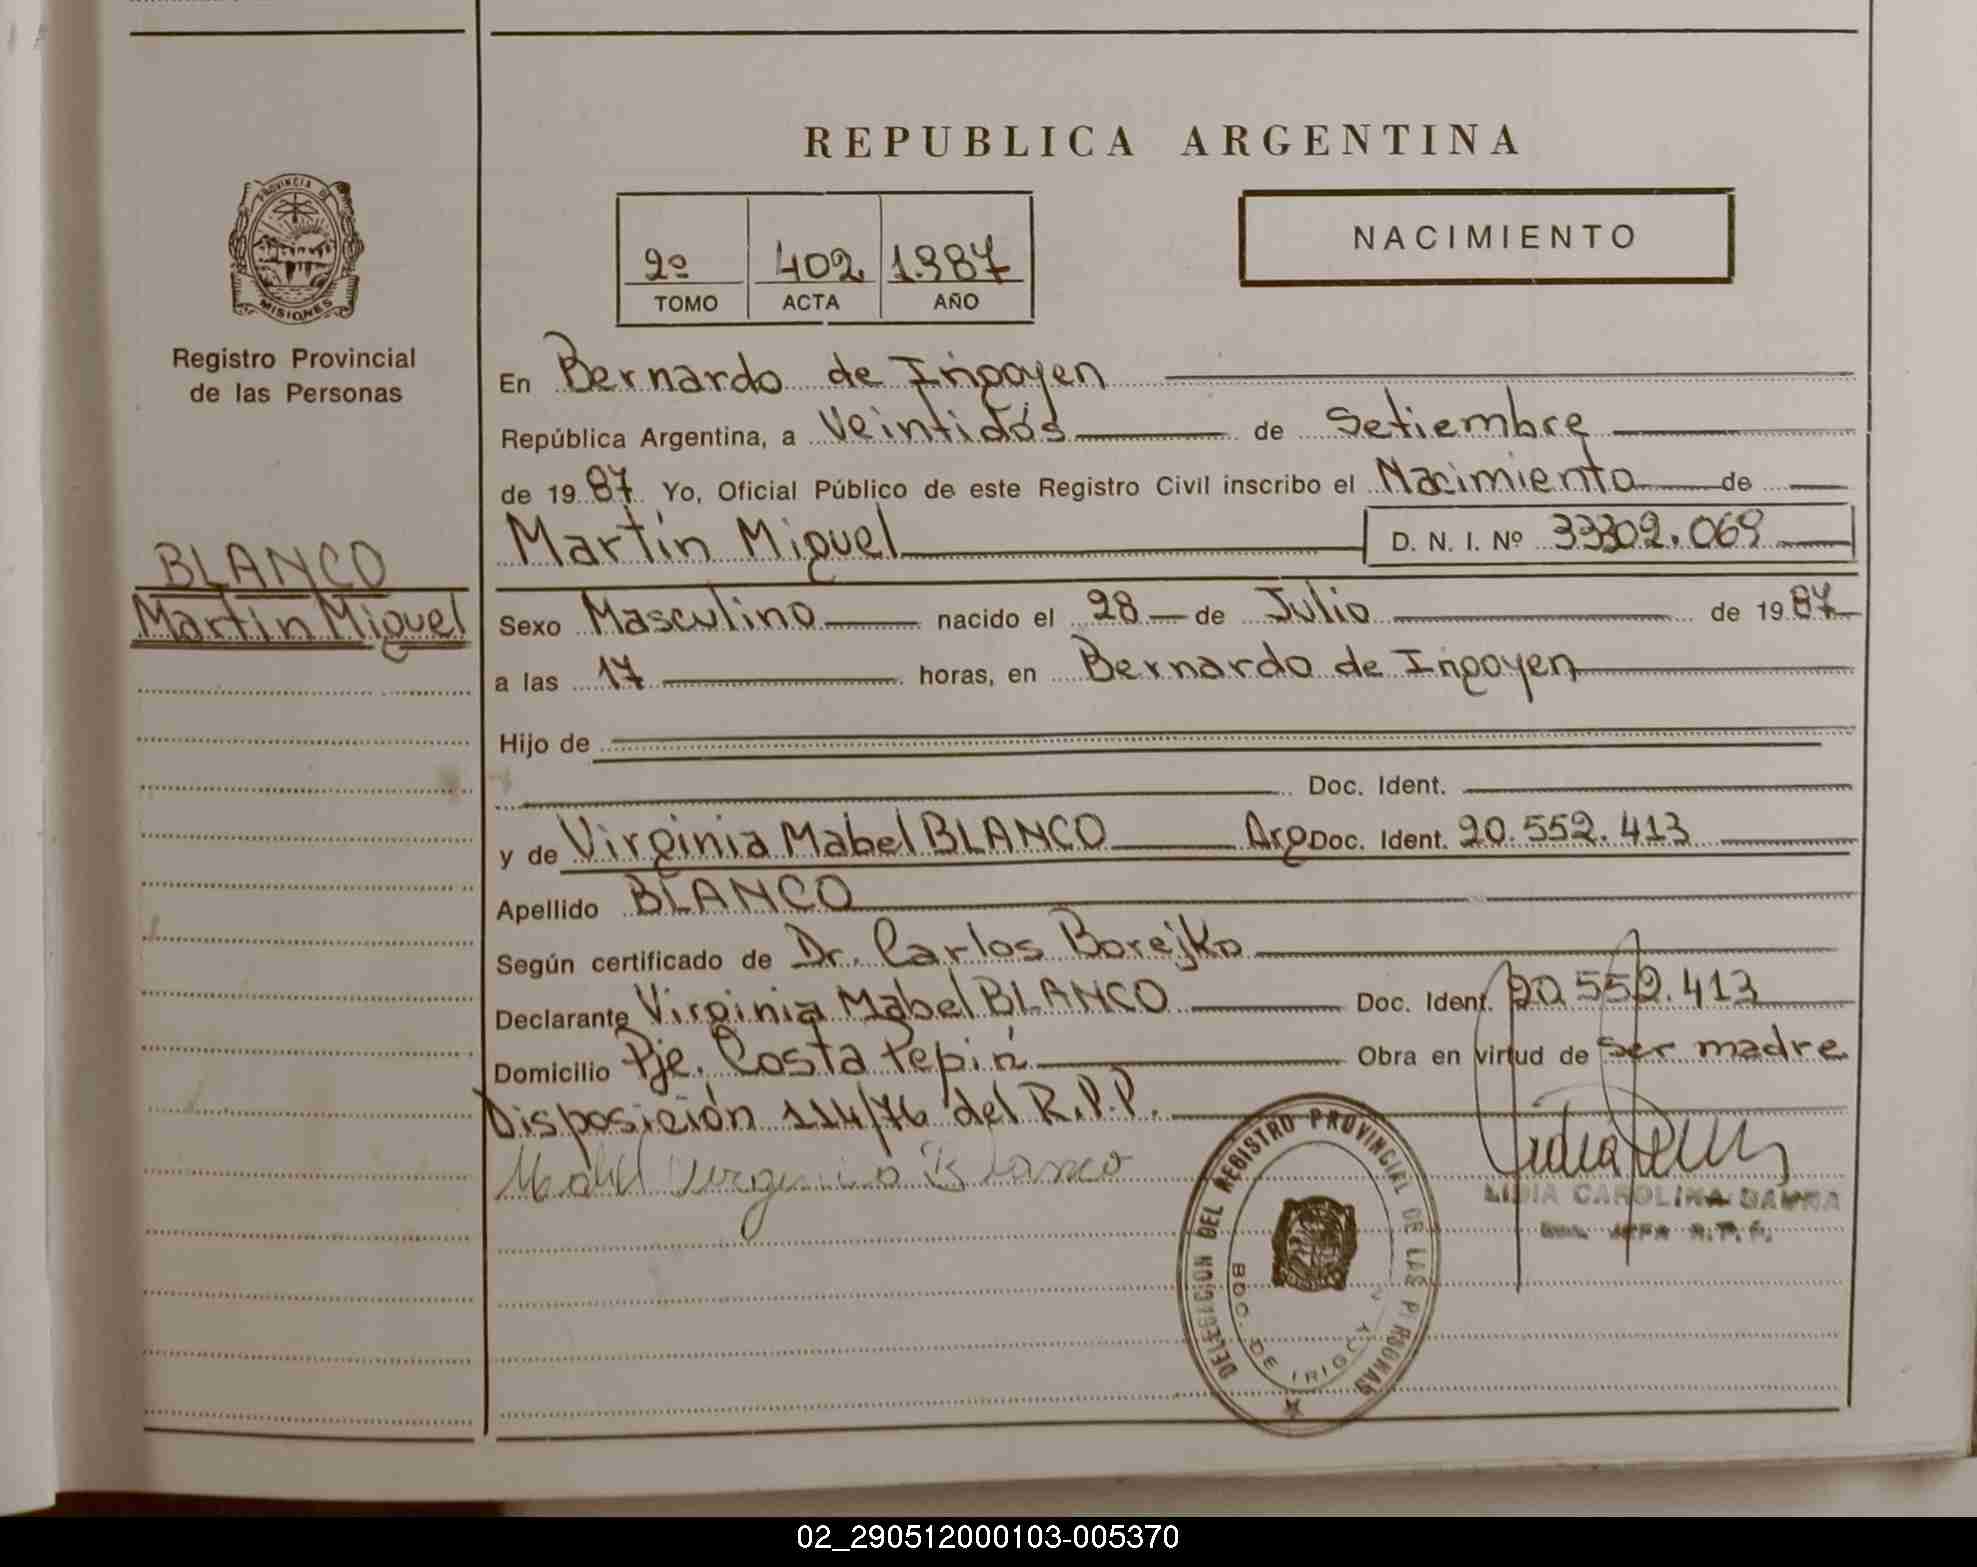 REPUBLICA ARGENTINA
PROVINCIA DE
MISIONES
Registro Provincial
de las Personas
BLANCO
Martín Miguel
2º 402 1.987
TOMO ACTA AÑO
NACIMIENTO
En Bernardo de Irigoyen
República Argentina, a Veintidós de Setiembre
de 1987 Yo, Oficial Público de este Registro Civil inscribo el Nacimiento de
Martín Miguel D. N. I. Nº 33302.069
Sexo Masculino nacido el 28 de Julio de 1987
a las 17 horas, en Bernardo de Irigoyen
Hijo de
Doc. Ident.
y de Virginia Mabel BLANCO Arg Doc. Ident. 20.552.413
Apellido BLANCO
Según certificado de Dr. Carlos Borejko
Declarante Virginia Mabel BLANCO Doc. Ident. 20.552.413
Domicilio Pje. Costa Pepirí Obra en virtud de ser madre
Disposición 114/76 del R.P.P.
Mabel Virginia Blanco
LIDIA CAROLINA
DELEGACION DEL REGISTRO PROVINCIAL DE LAS PERSONAS
BDO. DE IRIGOYEN
02_290512000103-005370